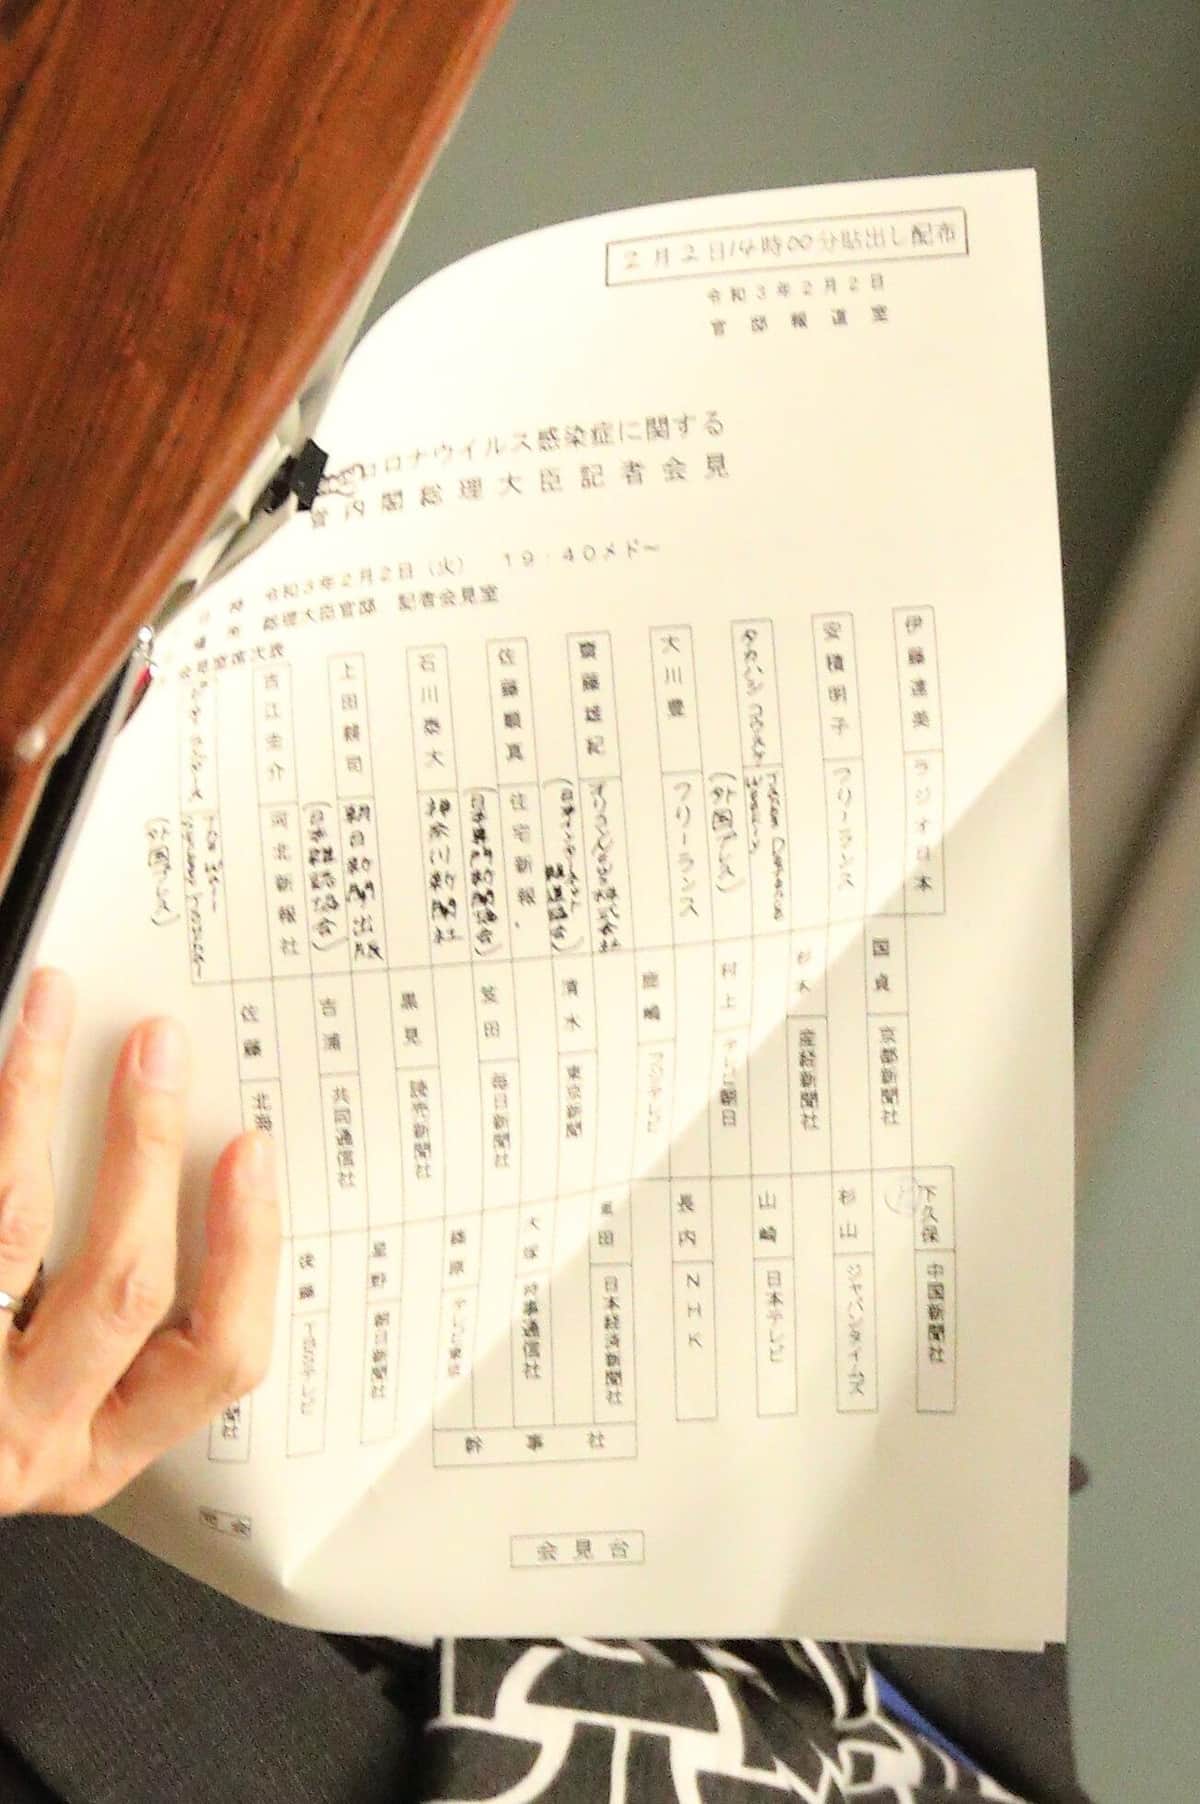 2月2日14時00分貼出し配布
令和3年2月2日
官邸報道室
コロナウイルス感染症に関する
内閣総理大臣記者会見
令和3年2月2日（火） 19:40メド～
総理大臣官邸 記者会見室
席次表
伊藤達美 ラジオ日本
安積明子 フリーランス
タカハシ コウスケ (外国プレス)
大川豊 フリーランス
齋藤雄紀 オリコンNewS株式会社 (日本インターネット報道協会)
佐藤順真 住宅新報 (日本専門新聞協会)
石川泰大 神奈川新聞社
上田耕司 朝日新聞出版 (日本雑誌協会)
吉江圭介 河北新報社
(外国プレス)
国貞 京都新聞社
杉本 産経新聞社
村上 テレビ朝日
鹿嶋 フジテレビ
清水 東京新聞
笈田 毎日新聞社
黒見 読売新聞社
吉浦 共同通信社
佐藤 北海
下久保 中国新聞社
杉山 ジャパンタイムズ
山崎 日本テレビ
長内 NHK
重田 日本経済新聞社
大塚 時事通信社
篠原 テレビ東京
星野 朝日新聞社
後藤 TBSテレビ
聞社
幹事社
会見台
司会